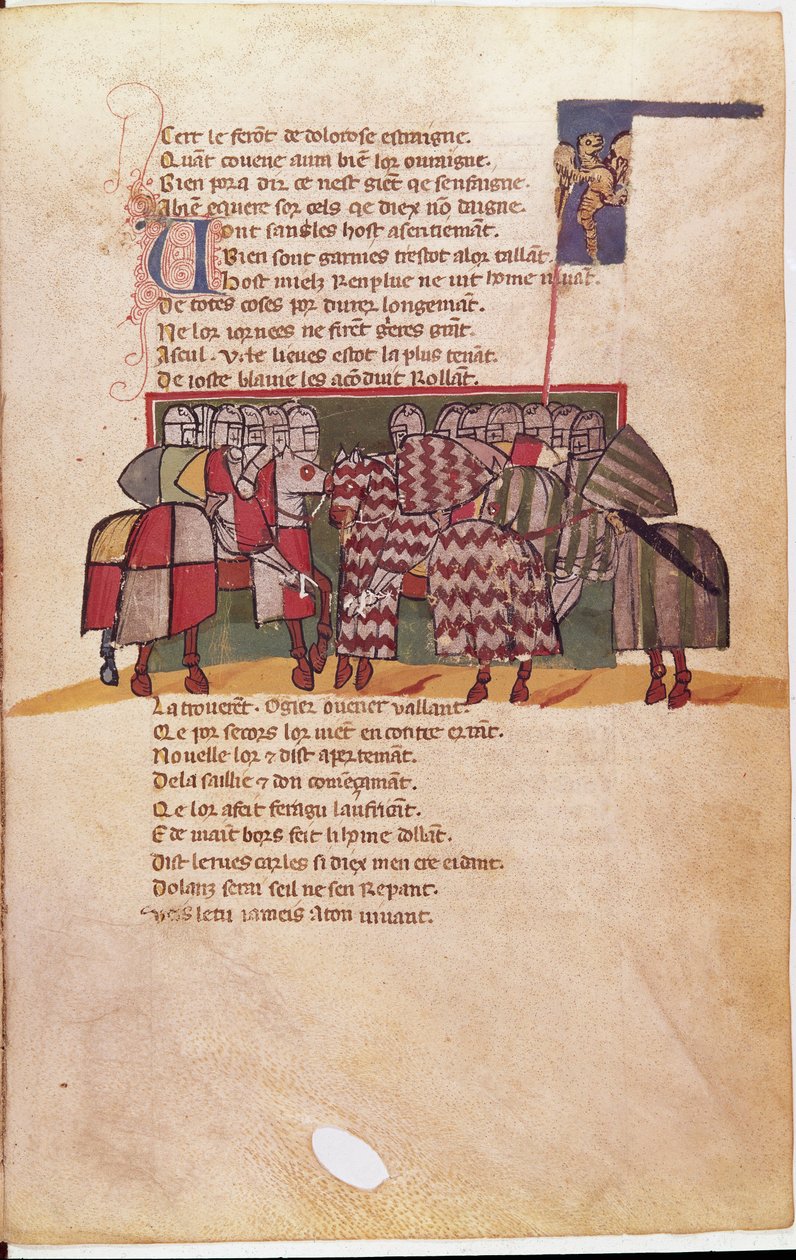 Cert le ferõt de dolorose estraigne.
Quãt covene aura biẽ lor ouraigne.
Bien pora dir ce nest giẽt qe senfaigne.
Abiẽ equere sor cels qe diex nõ daigne.
Vont sangles host asentiemãt.
Bien sont garnies trestot alor tallãt.
host mielz Renplue ne uit home uiuãt.
De totes coses por durer longemãt.
Ne lor iornees ne firẽt g̃res grãt.
Ascul. v. le lieues estot la plus tenãt.
De ioste blauie les acõduit Rollãt.
La trouerẽt. Ogier ouener vallant.
Qe por secors lor uiẽt en
Nouelle lor ⁊ dist apertemãt.
Dela saillie ⁊ don comẽçamãt.
Qe lor a feit feragu
E de maĩt bors feit li home dollãt.
Dist lerues carles si diex men cre eidant.
Dolanz serai seil ne sen Repant.
letu iameis Aton uiuant.